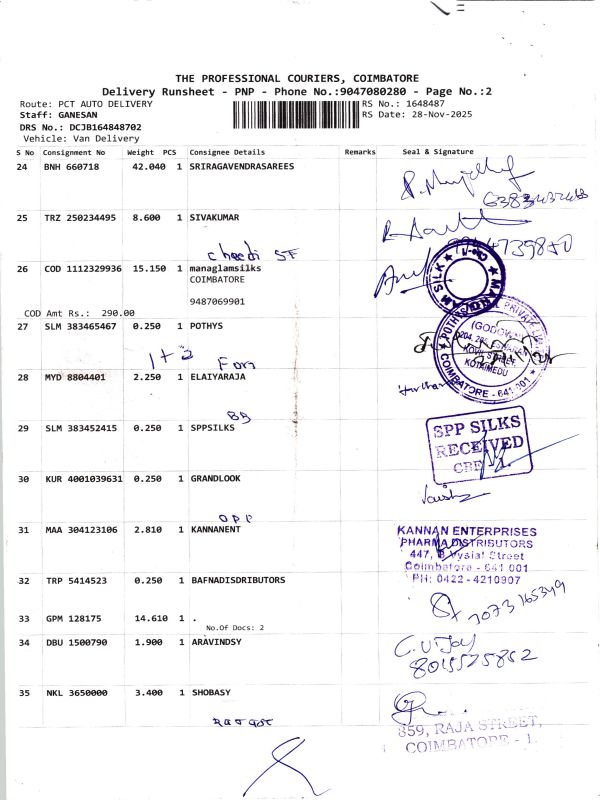 THE PROFESSIONAL COURIERS, COIMBATORE
Delivery Runsheet - PNP - Phone No.:9047080280 - Page No.:2
Route: PCT AUTO DELIVERY RS No.: 1648487
Staff: GANESAN RS Date: 28-Nov-2025
DRS No.: DCJB164848702
Vehicle: Van Delivery
S No Consignment No Weight PCS Consignee Details Remarks Seal & Signature
24 BNH 660718 42.040 1 SRIRAGAVENDRASAREES
25 TRZ 250234495 8.600 1 SIVAKUMAR
26 COD 1112329936 15.150 1 managlamsilks
COIMBATORE
9487069901
COD Amt Rs.: 290.00
27 SLM 383465467 0.250 1 POTHYS
1+2
28 MYD 8804401 2.250 1 ELAIYARAJA
29 SLM 383452415 0.250 1 SPPSILKS
SPP SILKS
RECEIVED
CBE - 1.
30 KUR 4001039631 0.250 1 GRANDLOOK
OPP
31 MAA 304123106 2.810 1 KANNANENT
KANNAN ENTERPRISES
PHARMA DISTRIBUTORS
447, Vysial Street
Coimbatore - 641 001
PH: 0422 - 4210907
32 TRP 5414523 0.250 1 BAFNADISDRIBUTORS
33 GPM 128175 14.610 1 .
No.Of Docs: 2
7073165349
34 DBU 1500790 1.900 1 ARAVINDSY
35 NKL 3650000 3.400 1 SHOBASY
859, RAJA STREET,
COIMBATORE - 1.